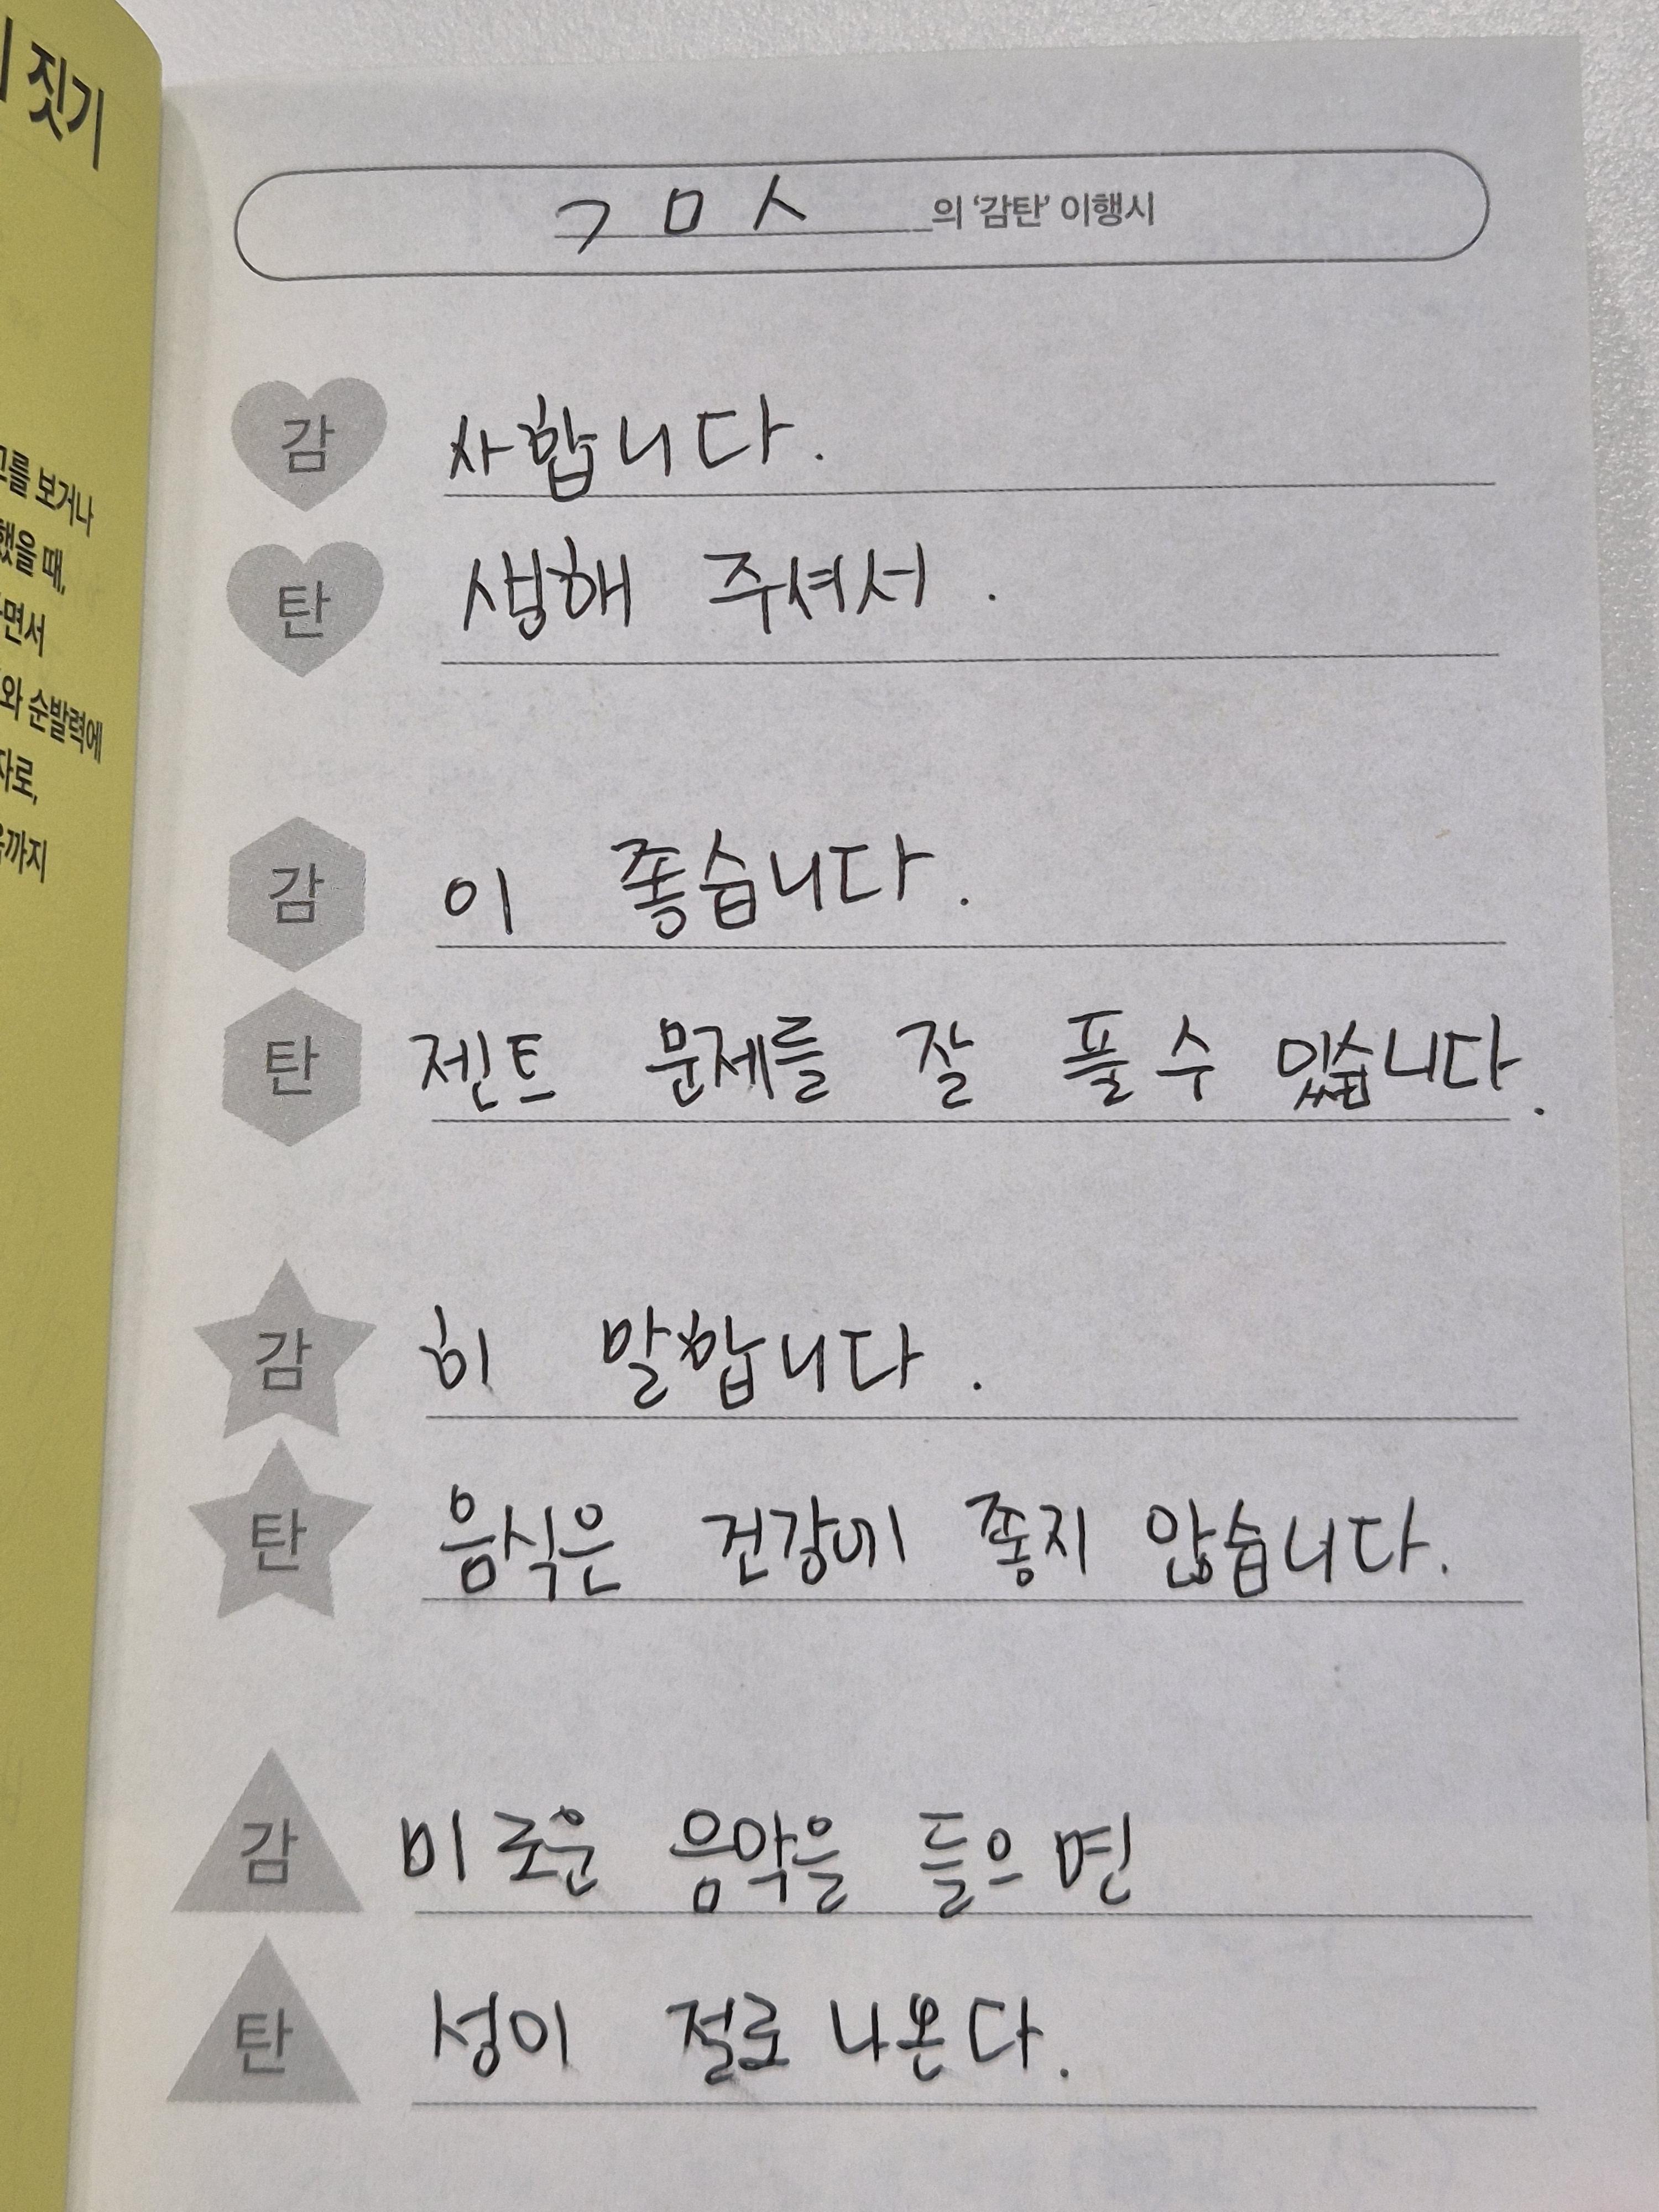 짓기
를 보거나
했을 때,
면서
와 순발력에
자로,
까지
ㄱㅁㅅ의 ‘감탄’ 이행시
감 사합니다.
탄 생해 주셔서.
감 이 좋습니다.
탄 젠트 문제를 잘 풀 수 있습니다.
감 히 말합니다.
탄 음식은 건강에 좋지 않습니다.
감 미로운 음악을 들으면
탄 성이 절로 나온다.